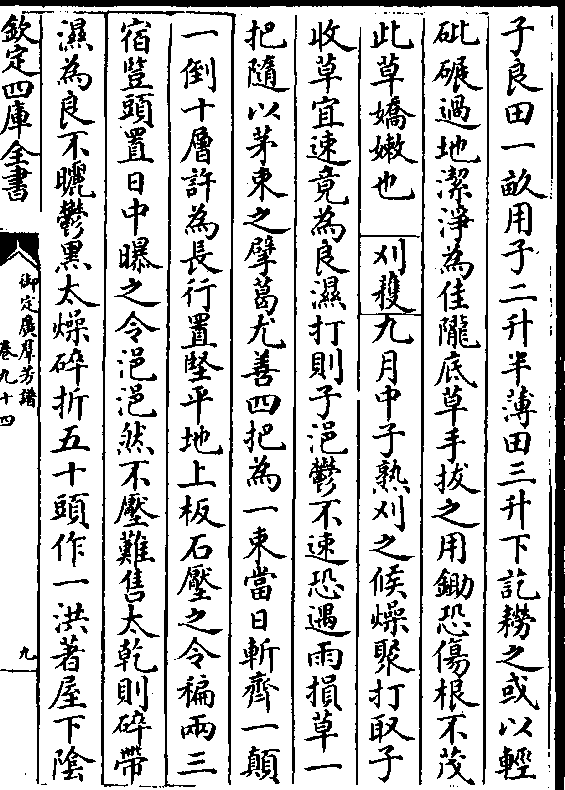 子良田一畝用子二升半薄田三升下訖耮之或以輕
砒碾過地潔淨為佳隴底草手拔之用鋤恐傷根不茂
此草嬌嫩也　刈穫　九月中子熟刈之候燥聚打取子
收草宜速竟為良濕打則子浥鬱不速恐遇雨損草一
把隨以茅束之擘葛尤善四把為一束當日斬齊一顛
一倒十層許為長行置堅平地上板石壓之令稨兩三
宿豎頭置日中曝之令浥浥然不壓難售太乾則碎帶
濕為良不曬鬱黑太燥碎折五十頭作一洪著屋下陰
欽定四庫全書
御定廣羣芳譜
卷九十四
九